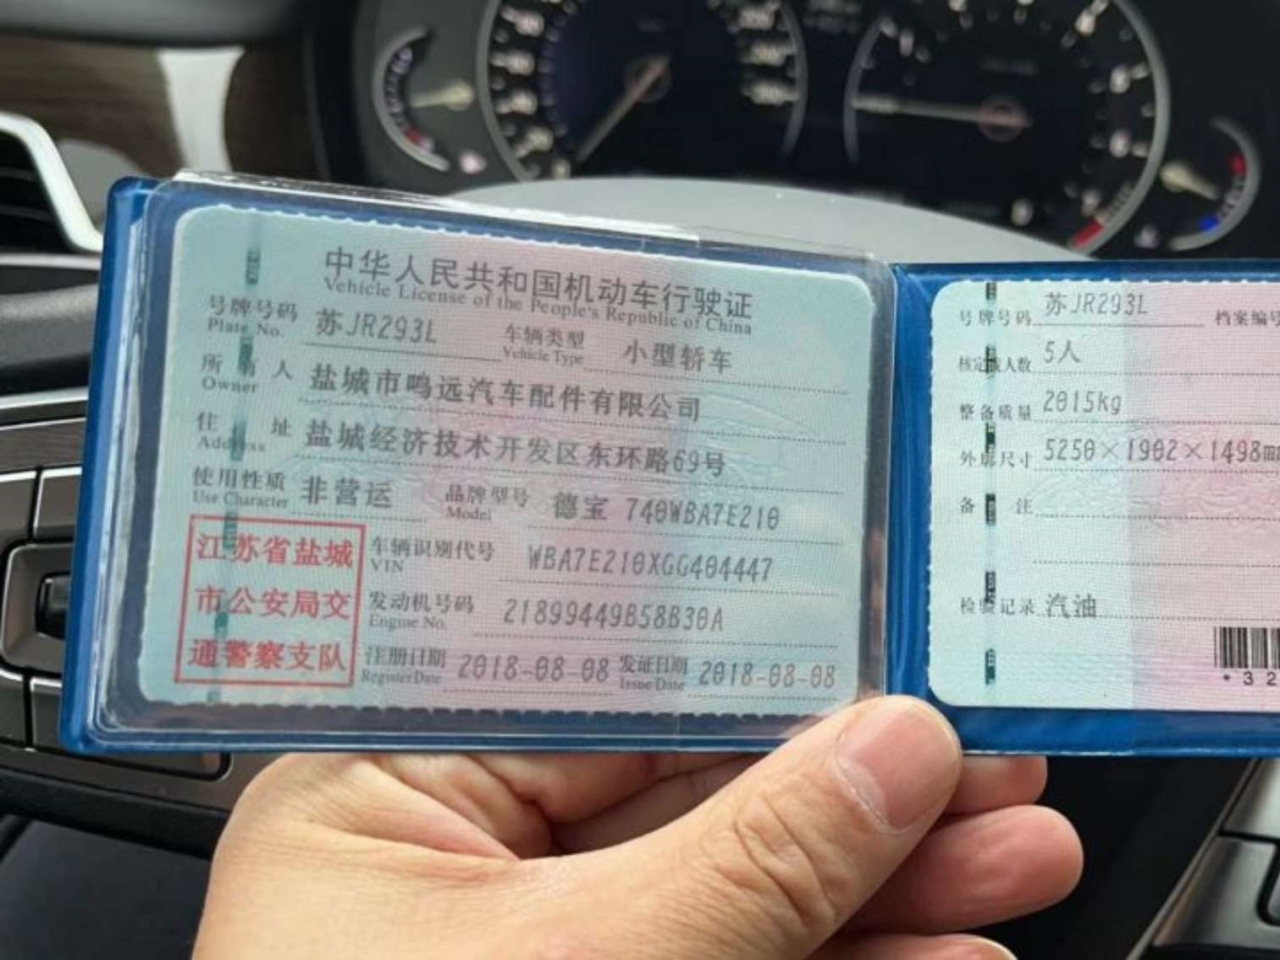 中华人民共和国机动车行驶证
Vehicle License of the People's Republic of China
号牌号码 苏JR293L 车辆类型 小型轿车
Plate No. Vehicle Type
所有人 盐城市鸣远汽车配件有限公司
Owner
住址 盐城经济技术开发区东环路69号
Address
使用性质 非营运 品牌型号 德宝 740WBA7E210
Use Character Model
江苏省盐城
市公安局交
通警察支队
车辆识别代号 WBA7E210XGG404447
VIN
发动机号码 21899449B58B30A
Engine No.
注册日期 2018-08-08 发证日期 2018-08-08
Register Date Issue Date
号牌号码 苏JR293L 档案编号
核定载人数 5人
整备质量 2015kg
外廓尺寸 5250×1902×1498mm
备注
检验记录 汽油
*32